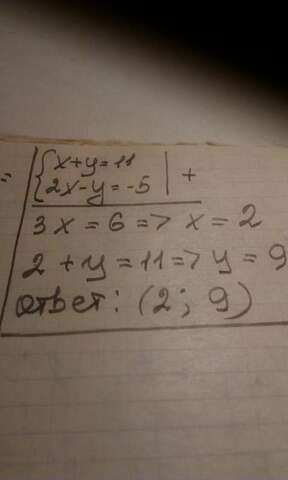 = { x+y=11
2x-y=-5 | +
3x=6 => x=2
2+y=11 => y=9
ответ: (2; 9)